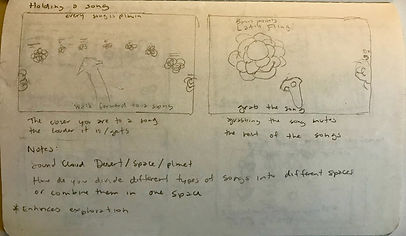 Holding a song
every song is playin
Walk forward to a song
The closer you are to a song
the louder it is/gets
grab the song
grabbing the song mutes
the rest of the songs
Notes:
Sound Cloud Desert/space/planet
How do you divide different types of songs into different spaces
or combine them in one space
* Enhances exploration